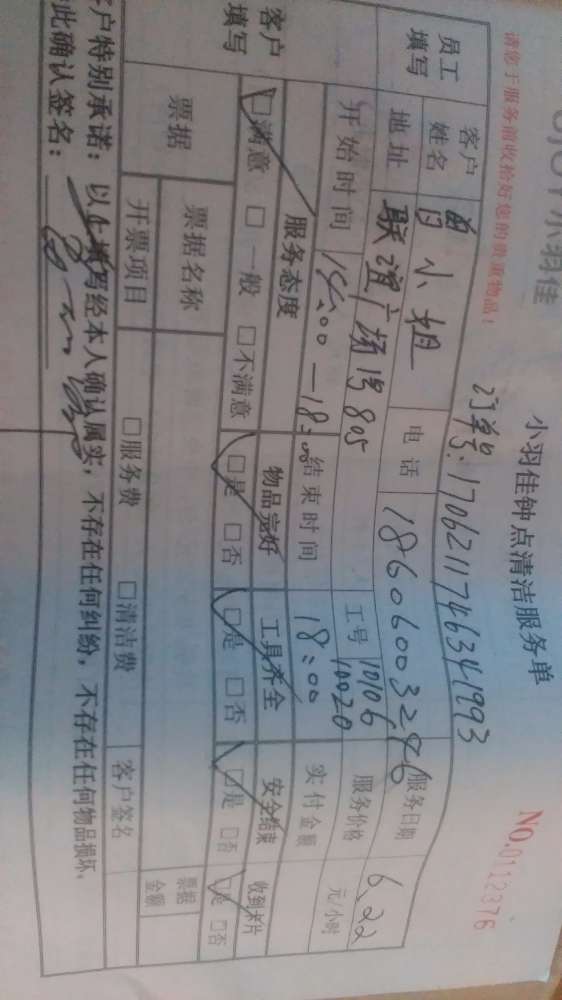 小羽佳
请您于服务前收拾好您的贵重物品！
小羽佳钟点清洁服务单
NO.0112376
订单号：1706211746341993
员工填写 客户姓名 曾小姐 电话 18606003296 服务日期 6.22
地址 联谊广场 805 工号 10106 10020 服务价格 元/小时
开始时间 14:00－18:00 结束时间 18:00 实付金额
客户填写 服务态度 物品完好 工具齐全 安全结束 收到卡片
☑满意 □一般 □不满意 ☑是 □否 ☑是 □否 ☑是 □否 ☑是 □否
票据 票据名称 票据金额
开票项目 □服务费 □清洁费 客户签名
客户特别承诺：以上填写经本人确认属实，不存在任何纠纷，不存在任何物品损坏。
此确认签名：